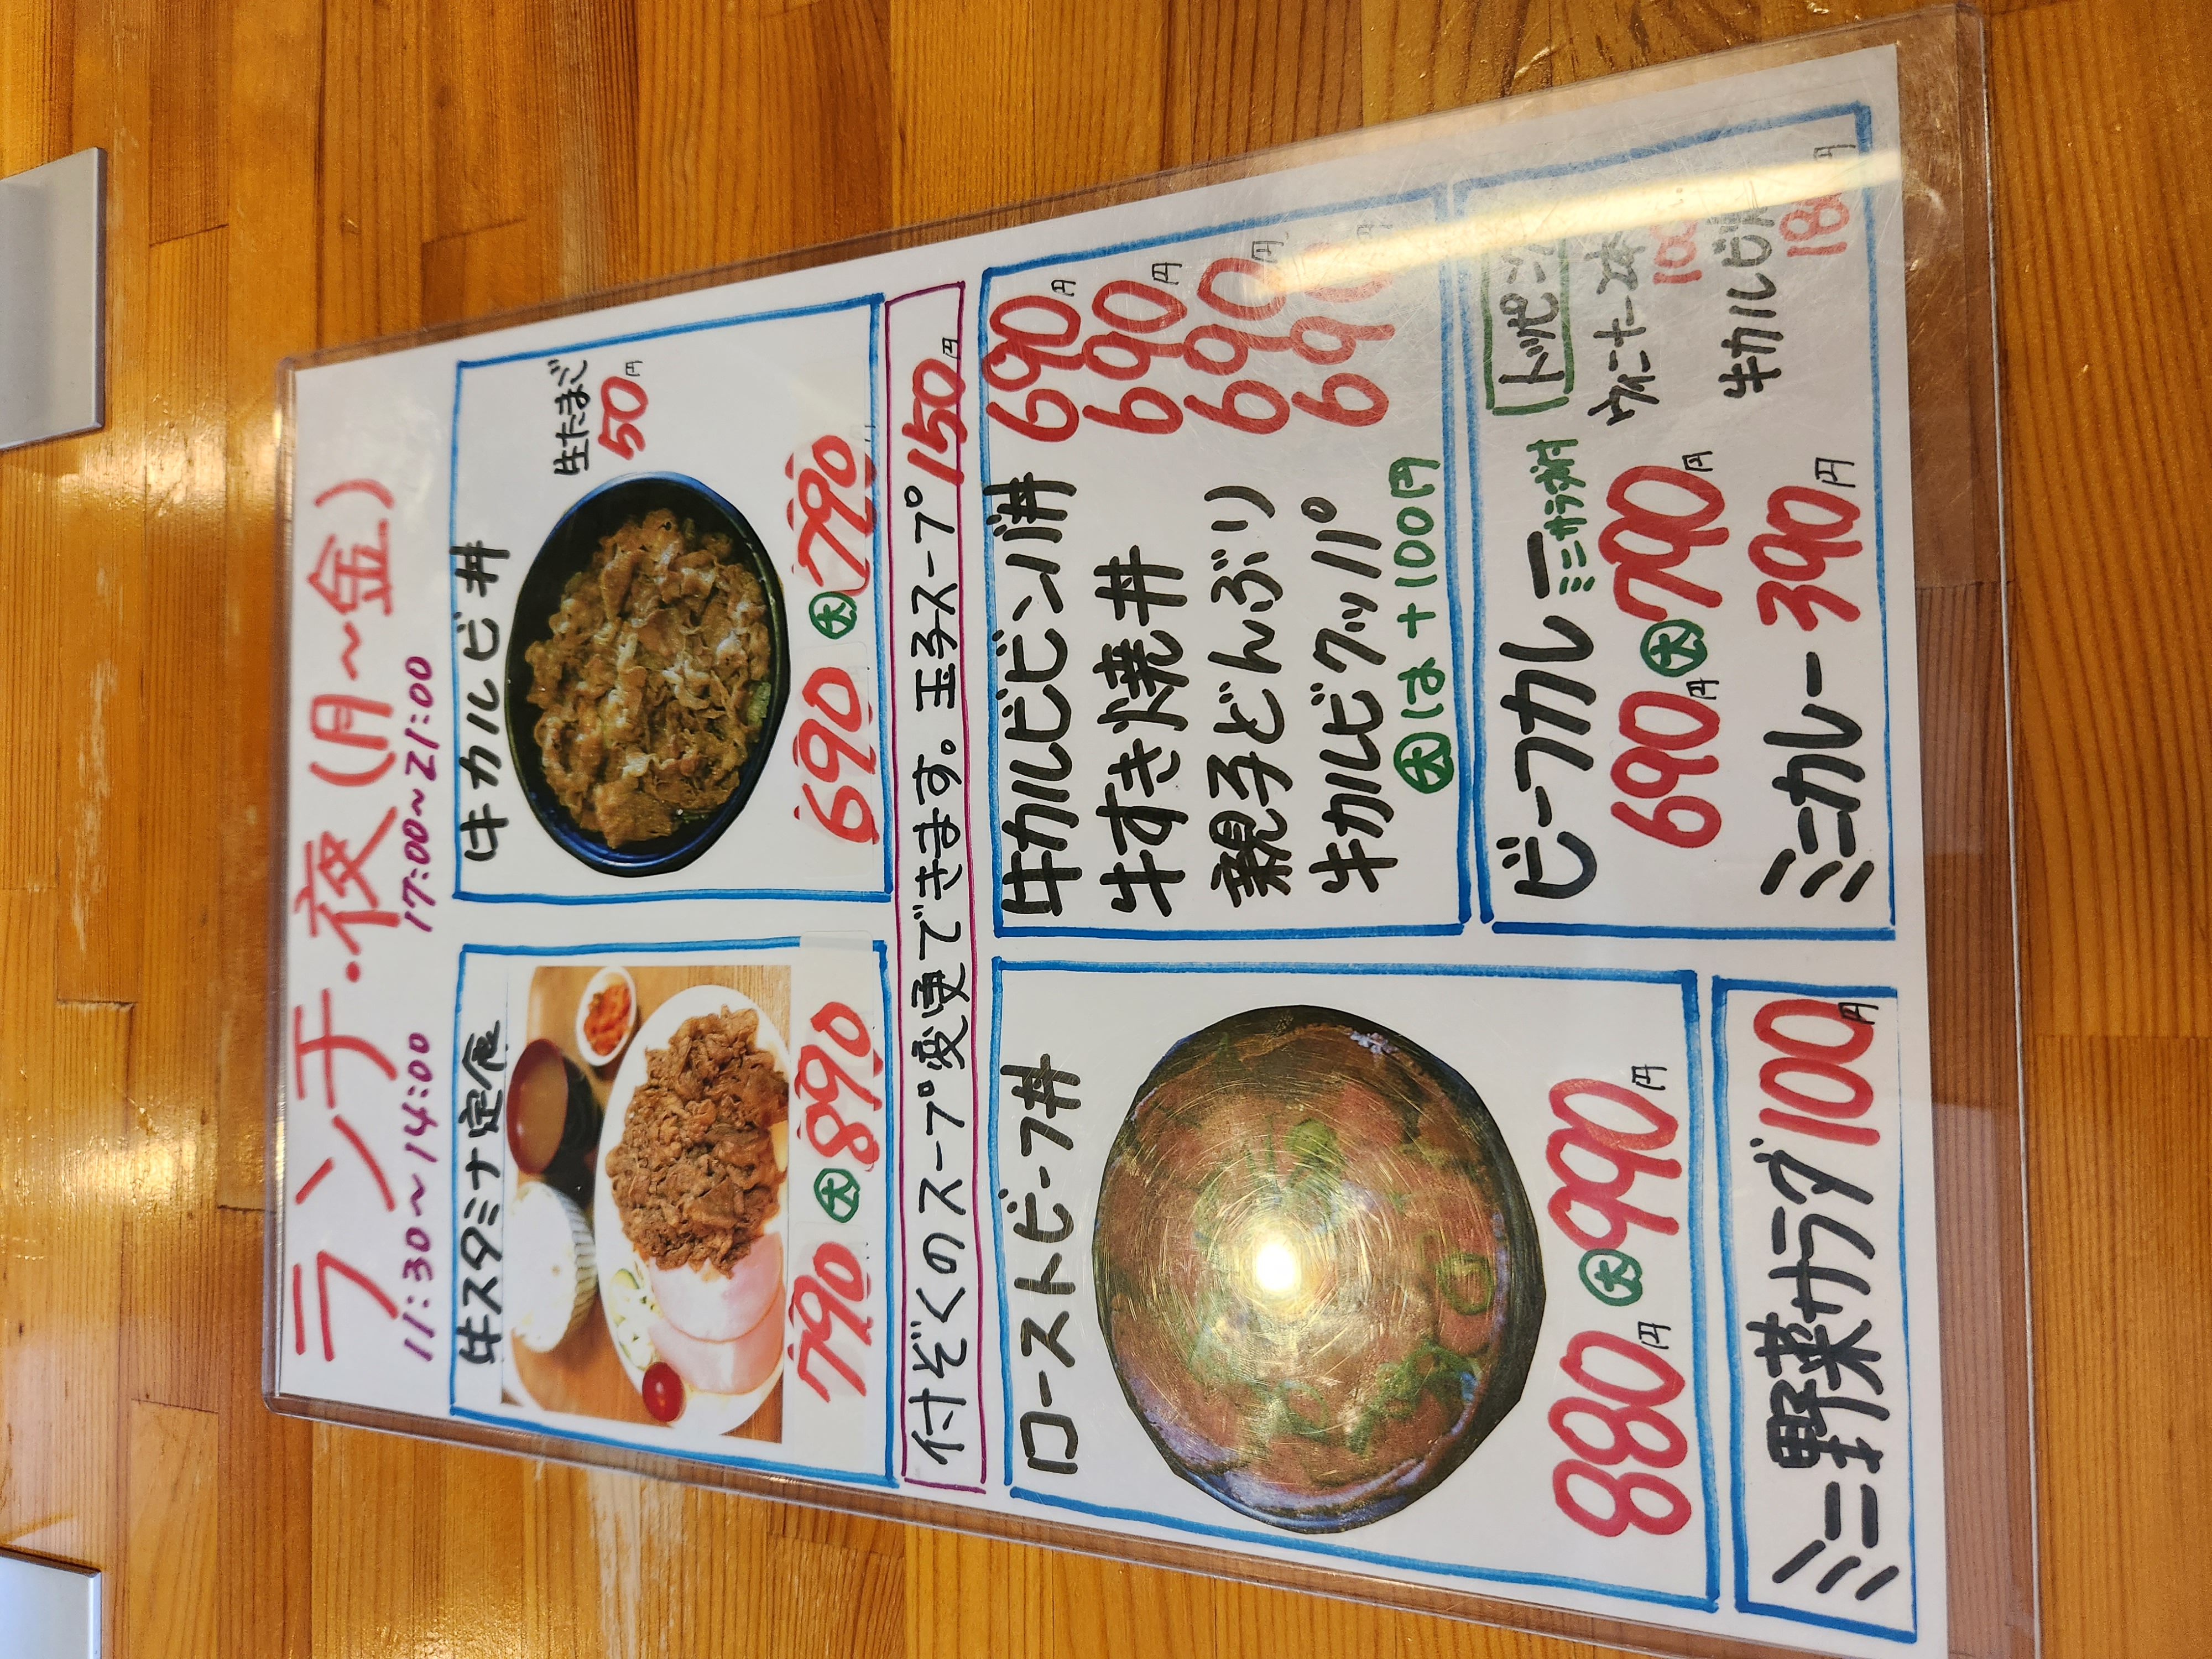 ランチ・夜(月~金)
11:30~14:00 17:00~21:00
牛スタミナ定食
790 大 890
牛カルビ丼
生たまご
50円
690 大 790
付ぞくのスープ変更できます。玉子スープ150円
ローストビーフ丼
880円 大 990円
ミニ野菜サラダ100円
牛カルビビンバ丼 690円
牛すき焼丼 690円
親子どんぶり 690円
牛カルビクッパ 690円
大は+100円
ビーフカレー ミニサラダ付
690円 大 790円
ミニカレー 390円
トッピング
ウィンナー2本
牛カルビ